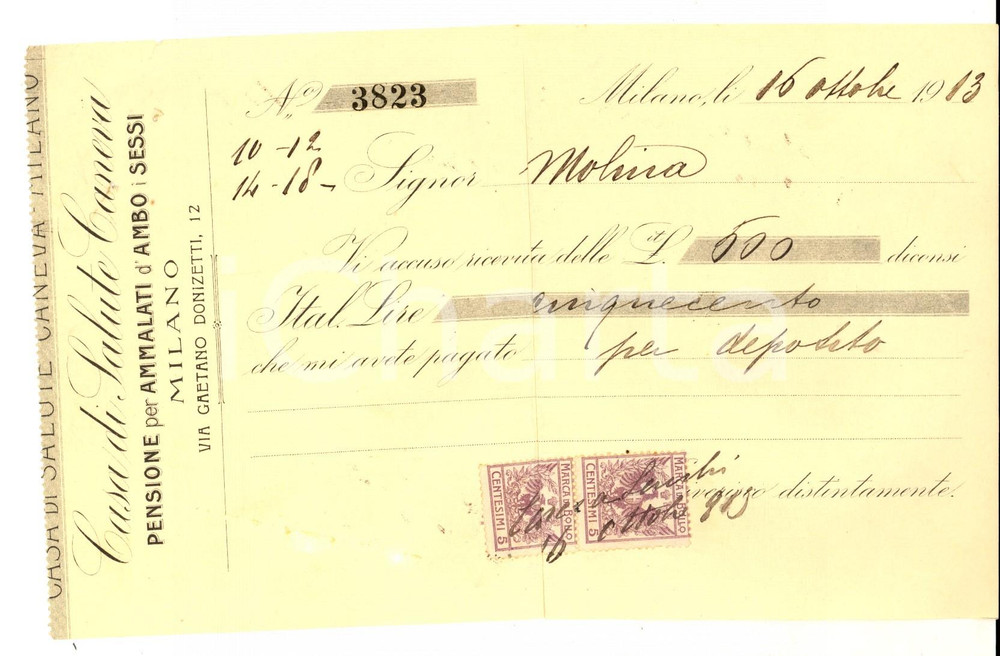 CASA DI SALUTE CANEVA - MILANO
Casa di Salute Caneva
PENSIONE per AMMALATI d'AMBO i SESSI
MILANO
VIA GAETANO DONIZETTI, 12
No 3823
Milano, li 16 ottobre 1913
10-12
14-18-
Signor Molina
Vi accuso ricevuta delle It. L. 500 diconsi
Ital. Lire cinquecento
che mi avete pagato per deposito
distintamente.
MARCA BOLLO
CENTESIMI 5
MARCA BOLLO
CENTESIMI 5
16 ottobre 913
iCharta